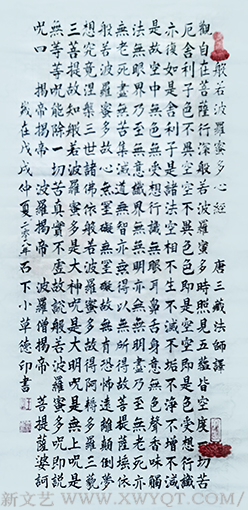 般若波羅蜜多心經 唐三藏法師譯
觀自在菩薩行深般若波羅蜜多時照見五蘊皆空度一切苦
厄舍利子色不異空空不異色色即是空空即是色受想行識
亦復如是舍利子是諸法空相不生不滅不垢不淨不增不減
是故空中無色無受想行識無眼耳鼻舌身意無色聲香味觸
法無眼界乃至無意識界無無明亦無無明盡乃至無老死亦
無老死盡無苦集滅道無智亦無得以無所得故菩提薩埵依
般若波羅蜜多故心無罣礙無罣礙故無有恐怖遠離顛倒夢
想究竟涅槃三世諸佛依般若波羅蜜多故得阿耨多羅三藐
三菩提故知般若波羅蜜多是大神呪是大明呪是無上呪是
無等等呪能除一切苦真實不虛故說般若波羅蜜多呪即說
呪曰 揭帝揭帝 波羅揭帝 波羅僧揭帝 菩提薩婆訶
歲在戊戌仲夏 石下小草德印書
新文艺 www.XWYQT.com